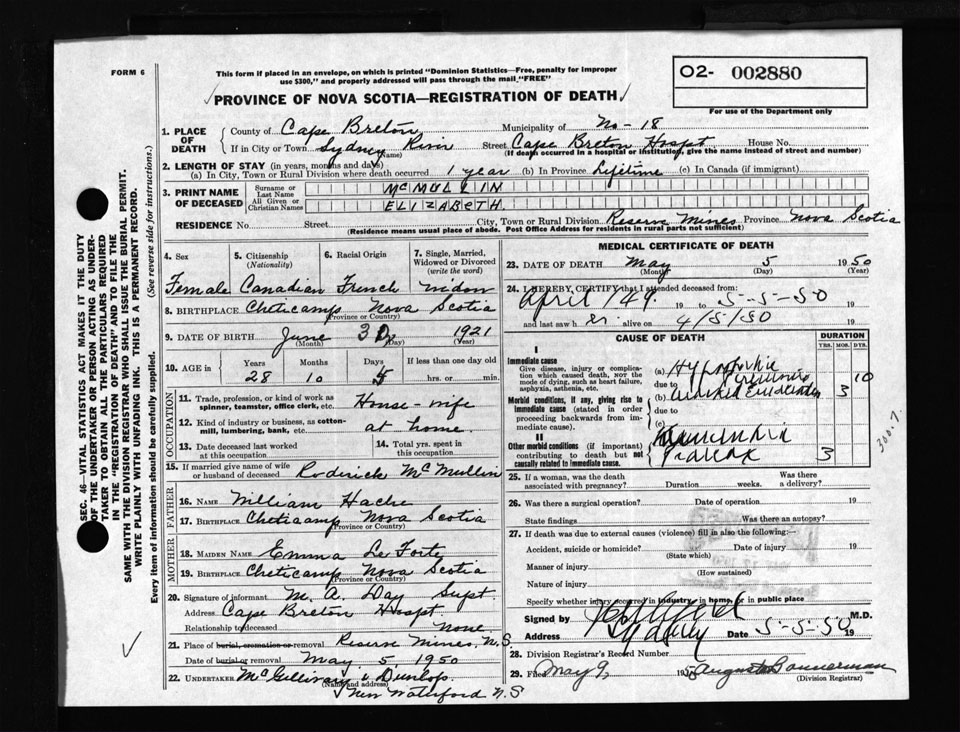 FORM 6
This form if placed in an envelope, on which is printed "Dominion Statistics—Free, penalty for improper
use $300," and properly addressed will pass through the mail, "FREE"
PROVINCE OF NOVA SCOTIA—REGISTRATION OF DEATH
O2- 002880
For use of the Department only
1. PLACE OF DEATH
County of Cape Breton Municipality of No-18
If in City or Town Sydney River Street Cape Breton Hospt House No.
(Name) (If death occurred in a hospital or institution, give the name instead of street and number)
2. LENGTH OF STAY (in years, months and days)
(a) In City, Town or Rural Division where death occurred 1 year (b) In Province Lifetime (c) In Canada (if immigrant)
3. PRINT NAME OF DECEASED
Surname or Last Name MCMULLIN
All Given or Christian Names ELIZABETH
RESIDENCE No. Street City, Town or Rural Division Reserve Mines Province Nova Scotia
(Residence means usual place of abode. Post Office Address for residents in rural parts not sufficient)
4. Sex 5. Citizenship (Nationality) 6. Racial Origin 7. Single, Married, Widowed or Divorced (write the word)
Female Canadian French widow
8. BIRTHPLACE Cheticamp Nova Scotia
(Province or Country)
9. DATE OF BIRTH June 30 1921
(Month) (Day) (Year)
10. AGE in Years Months Days If less than one day old
28 10 5 hrs. or min.
OCCUPATION
11. Trade, profession, or kind of work as spinner, teamster, office clerk, etc. House-wife
12. Kind of industry or business, as cotton-mill, lumbering, bank, etc. at home
13. Date deceased last worked at this occupation 14. Total yrs. spent in this occupation
15. If married give name of wife or husband of deceased Roderick McMullin
FATHER
16. NAME William Hache
17. BIRTHPLACE Cheticamp Nova Scotia
(Province or Country)
MOTHER
18. MAIDEN NAME Emma LeForte
19. BIRTHPLACE Cheticamp Nova Scotia
(Province or Country)
20. Signature of informant M. A. Day Supt
Address Cape Breton Hospt
Relationship to deceased None
21. Place of burial, cremation or removal Reserve Mines, N.S.
Date of burial or removal May 5 1950
22. UNDERTAKER McGillivary & Dunlop
(Name and address)
New Waterford N.S
MEDICAL CERTIFICATE OF DEATH
23. DATE OF DEATH May 5 1950
(Month) (Day) (Year)
24. I HEREBY CERTIFY that I attended deceased from:
April 1/49 19 to 5-5-50 19
and last saw her alive on 4/5/50 19
CAUSE OF DEATH
DURATION
YRS. MOS. DYS.
I
Immediate cause
Give disease, injury or complication which caused death, not the mode of dying, such as heart failure, asphyxia, asthenia, etc.
(a)
due to 10
Morbid conditions, if any, giving rise to immediate cause (stated in order proceeding backwards from immediate cause).
(b) 3
due to
(c)
II
Other morbid conditions (if important) contributing to death but not causally related to immediate cause.
3
300.7
25. If a woman, was the death associated with pregnancy? Duration weeks. Was there a delivery?
26. Was there a surgical operation? Date of operation 19
State findings Was there an autopsy?
27. If death was due to external causes (violence) fill in also the following:—
Accident, suicide or homicide? Date of injury 19
(State which)
Manner of injury
(How sustained)
Nature of injury
Specify whether injury occurred in industry, in home, or in public place
Signed by M.D.
Address Date 5-5-50 19
28. Division Registrar's Record Number
29. Filed May 9, 1950
(Division Registrar)
SEC. 46—VITAL STATISTICS ACT MAKES IT THE DUTY
OF THE UNDERTAKER OR PERSON ACTING AS UNDERTAKER
TO OBTAIN ALL THE PARTICULARS REQUIRED
IN THE "REGISTRATION OF DEATH" AND TO FILE THE
SAME WITH THE DIVISION REGISTRAR WHO SHALL ISSUE THE BURIAL PERMIT.
WRITE PLAINLY WITH UNFADING INK. THIS IS A PERMANENT RECORD.
Every item of information should be carefully supplied. (See reverse side for instructions.)